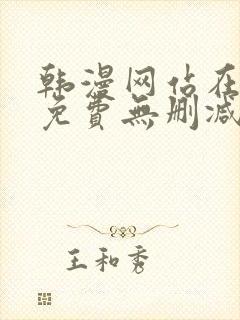 韩漫网站在
免費無删减
王和秀